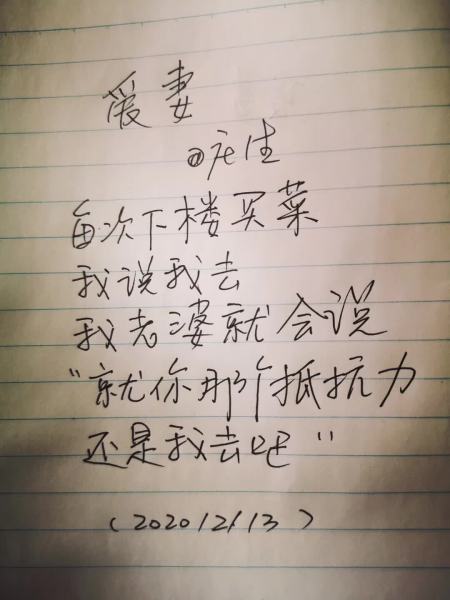 爱妻
@庄生
每次下楼买菜
我说我去
我老婆就会说
“就你那个抵抗力
还是我去吧”
(2020/2/13)